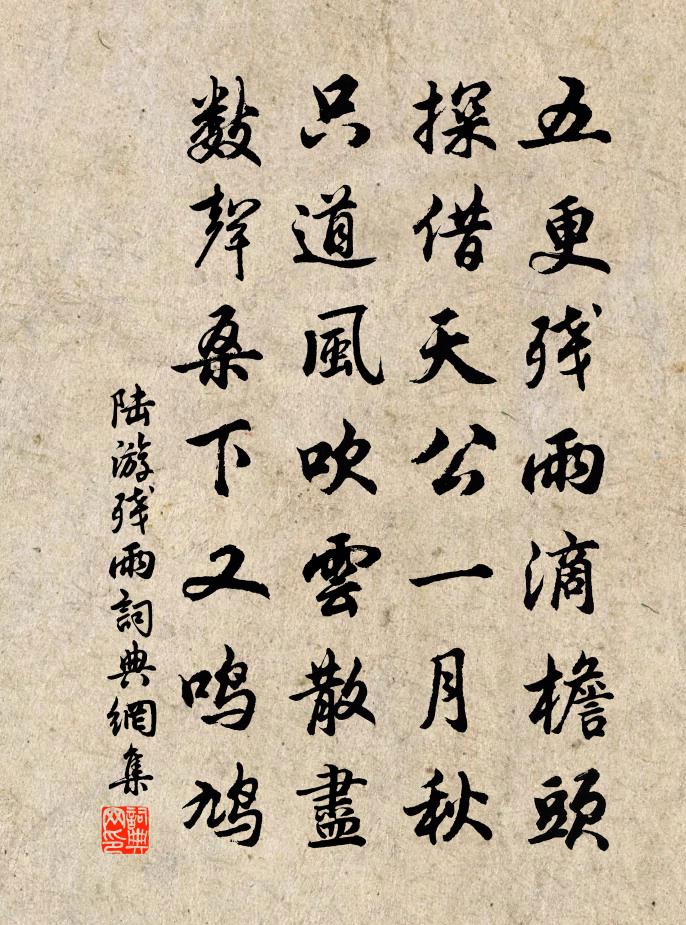 五更残雨滴檐頭
探借天公一月秋
只道風吹雲散盡
数聲桑下又鸣鸠
陆游残雨詞典網集
詞典网印